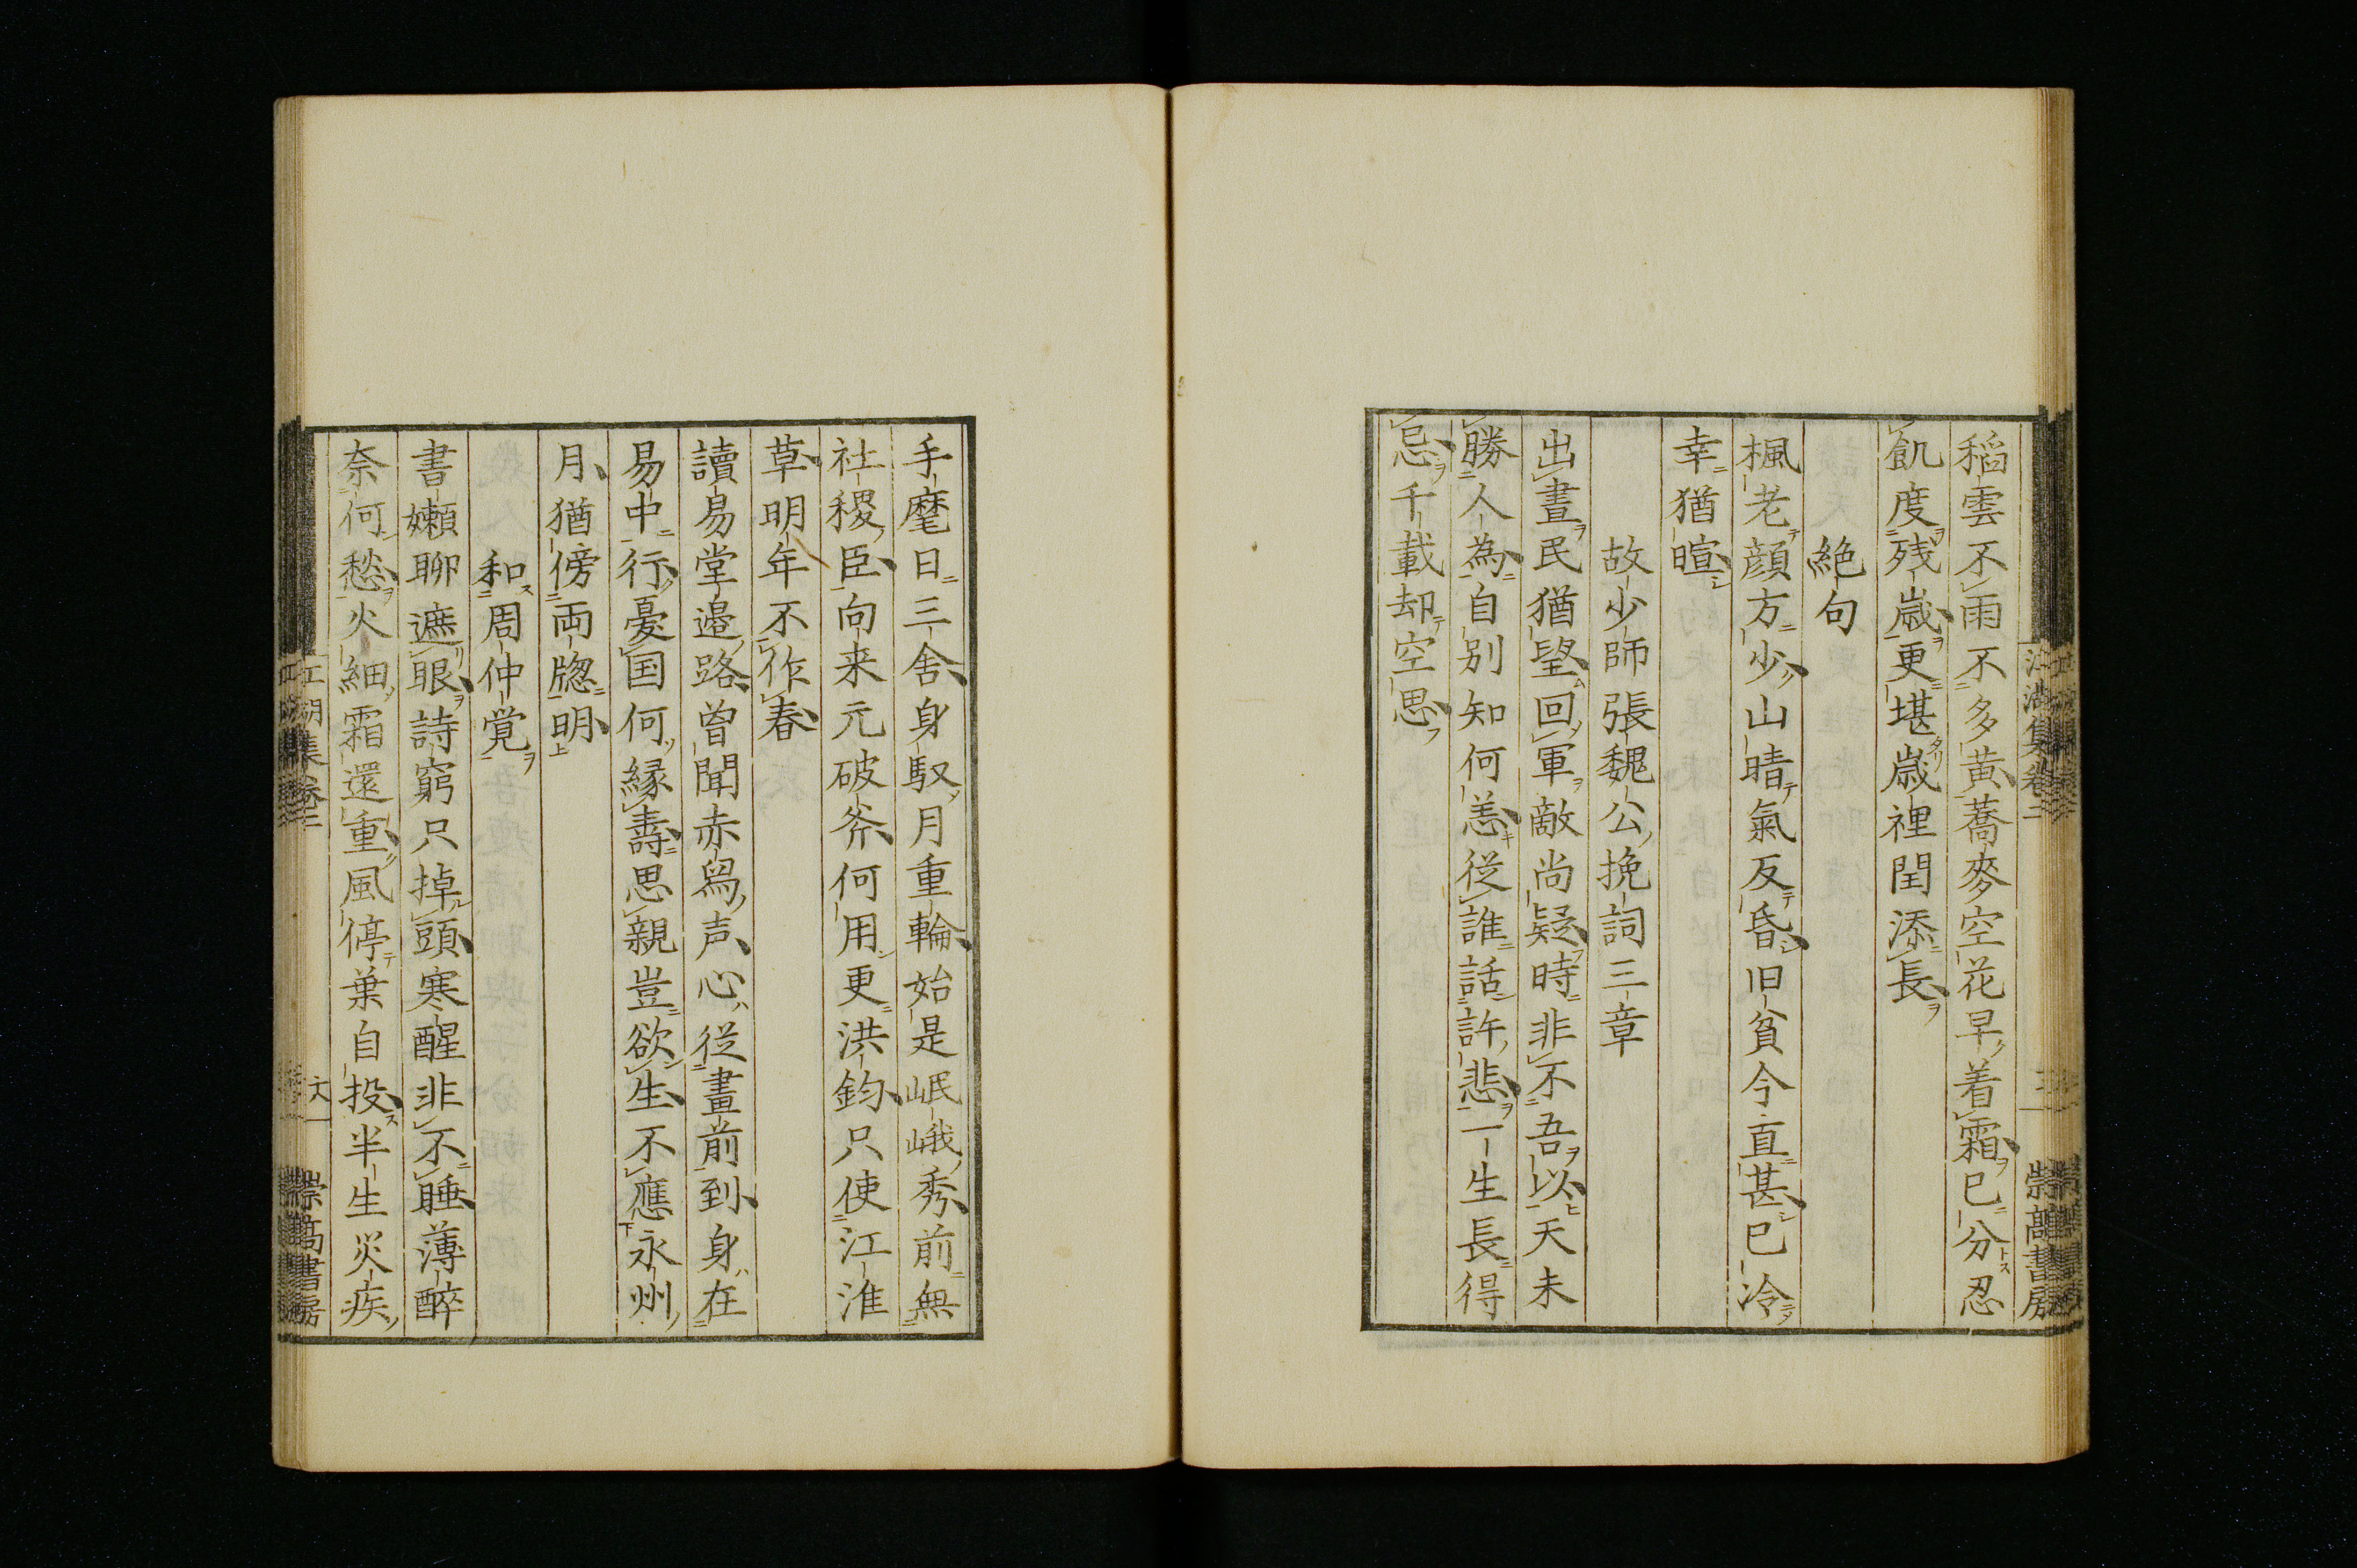 稻雲不雨不多黄蕎麥空花早着霜已分忍
飢度残歳更堪歳裡閏添長
絶句
楓老顔方少山晴氣反昏旧貧今直甚已冷
幸猶暄
故少師張魏公挽詞三章
出晝民猶望回軍敵尚疑時非不吾以天未
勝人為自別知何恙従誰話許悲一生長得
忌千載却空思
江湖集巻二
崇高書房
手麾日三舎身馭月重輪始是岷峨秀前無
社稷臣向来元破斧何用更洪鈞只使江淮
草明年不作春
讀易堂邉路曽聞赤舄声心従畫前到身在
易中行憂国何縁壽思親豈欲生不應永州
月猶傍両牎明
和周仲覚
書嬾聊遮眼詩窮只掉頭寒醒非不睡薄醉
奈何愁火細霜還重風停葉自投半生災疾
江湖集巻二
崇高書房